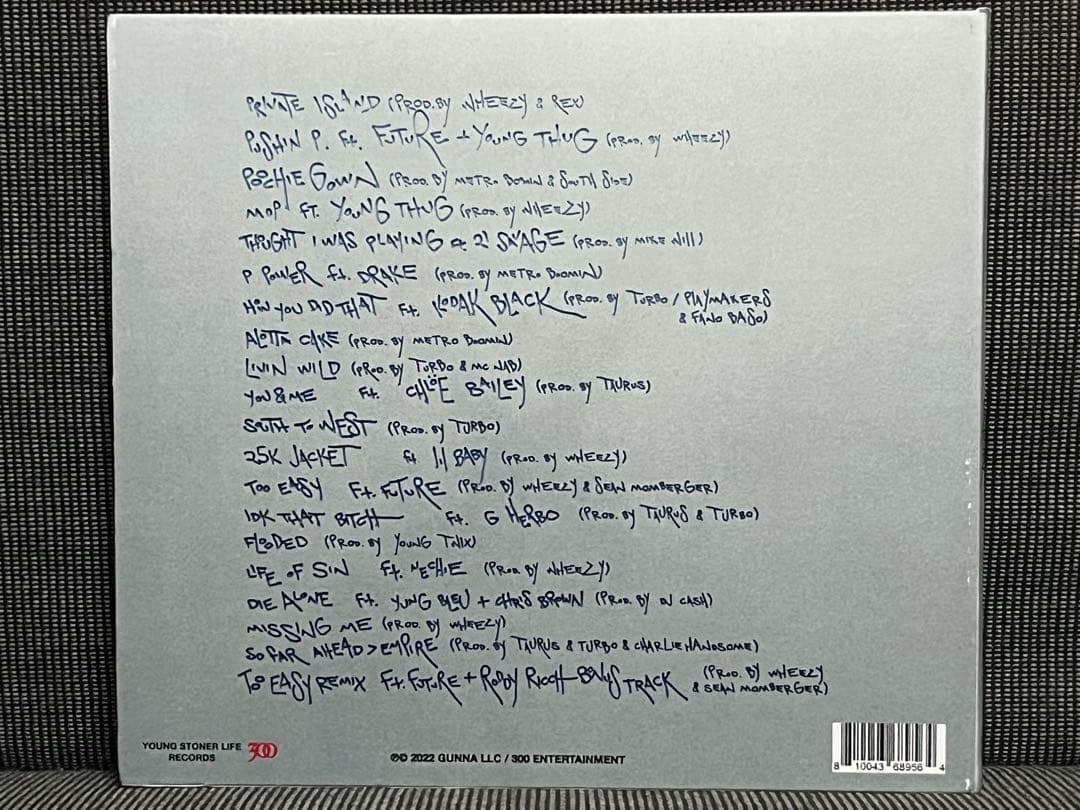 PRIVATE ISLAND (PROD. BY WHEEZY & REX)
PUSHIN P. Ft. FUTURE + YOUNG THUG (PROD. BY WHEEZY)
POOCHIE GOWN (PROD. BY METRO BOOMIN & SOUTH SIDE)
MOP FT. YOUNG THUG (PROD. BY WHEEZY)
THOUGHT I WAS PLAYING & 21 SAVAGE (PROD. BY MIKE WILL)
P POWER ft. DRAKE (PROD. BY METRO BOOMIN)
HOW YOU DID THAT Ft. KODAK BLACK (PROD. BY TURBO / PLAYMAKERS
& FANO BASO)
ALOTTA CAKE (PROD. BY METRO BOOMIN)
LIVIN WILD (PROD. BY TURBO & MC NAB)
YOU & ME Ft. CHLÖE BAILEY (PROD. BY TAURUS)
SOUTH TO WEST (PROD. BY TURBO)
25K JACKET ft Lil BABY (PROD. BY WHEEZY)
TOO EASY Ft. FUTURE (PROD. BY WHEEZY & SEAN MOMBERGER)
IDK THAT BITCH Ft. G HERBO (PROD. BY TAURUS & TURBO)
FLOODED (PROD. BY YOUNG TWIX)
LIFE OF SIN Ft. NECHIE (PROD. BY WHEEZY)
DIE ALONE Ft. YUNG BLEU + CHRIS BROWN (PROD. BY DJ CASH)
MISSING ME (PROD. BY WHEEZY)
SO FAR AHEAD > EMPIRE (PROD. BY TAURUS & TURBO & CHARLIE HANDSOME)
TOO EASY REMIX Ft. FUTURE + RODDY RICCH BONUS TRACK (PROD. BY WHEEZY
& SEAN MOMBERGER)
YOUNG STONER LIFE
RECORDS
300
℗© 2022 GUNNA LLC / 300 ENTERTAINMENT
8 10043 68956 4